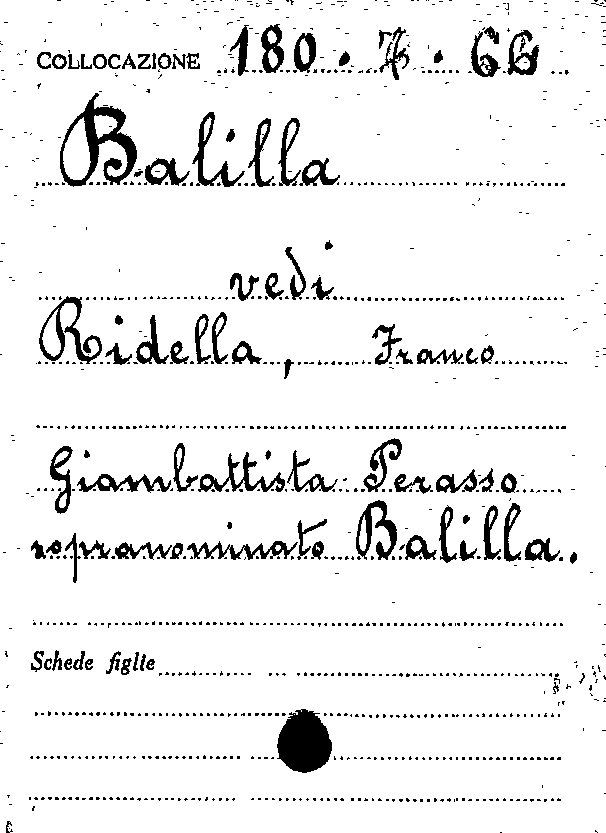 COLLOCAZIONE 180.7.66
Balilla
vedi
Ridella, Franco
Giambattista Perasso
sopranominato Balilla.
Schede figlie